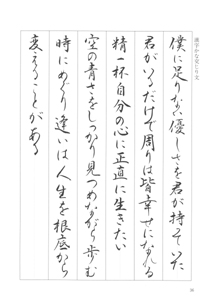 漢字かな交じり文
僕に足りない優しさを君が持っていた
君がいるだけで周りは皆幸せになれる
精一杯自分の心に正直に生きたい
空の青さをしっかり見つめながら歩む
時にめぐり逢いは人生を根底から
変えることがある